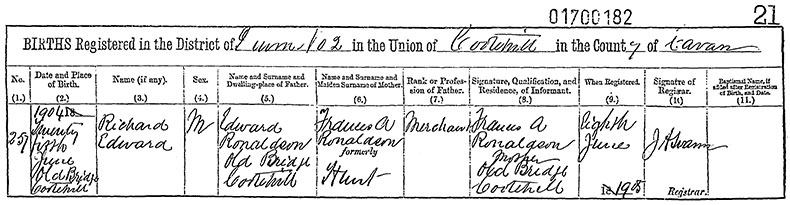 01700182 21
BIRTHS Registered in the District of Drum No 2 in the Union of Cootehill in the County of Cavan
No. (1.)
Date and Place of Birth. (2.)
Name (if any). (3.)
Sex. (4.)
Name and Surname and Dwelling-place of Father. (5.)
Name and Surname and Maiden Surname of Mother. (6.)
Rank or Profession of Father. (7.)
Signature, Qualification, and Residence, of Informant. (8.)
When Registered. (9.)
Signature of Registrar. (10)
Baptismal Name, if added after Registration of Birth, and Date. (11.)
1904
Twenty
June
Old Bridge
Cootehill
Richard
Edward
M
Edward
Ronaldson
Old Bridge
Cootehill
Frances A
Ronaldson
formerly
Hunt
Merchant
Frances A
Ronaldson
Mother
Old Bridge
Cootehill
Eighth
June
Registrar.